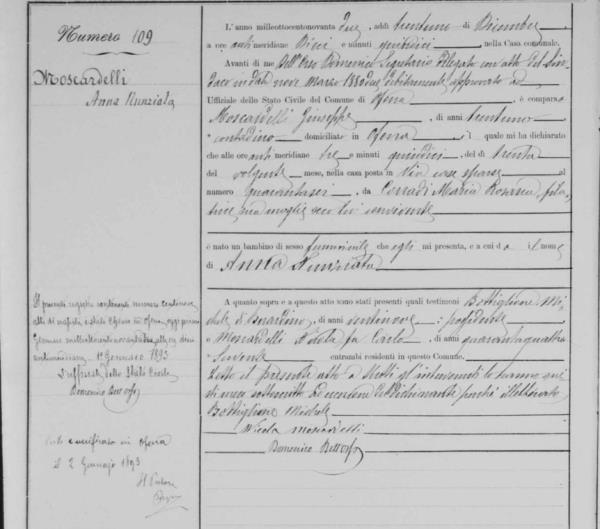 Numero 109
Moscardelli
Anna Nunziata
L'anno milleottocentonovanta due, addì trentuno di Dicembre
a ore anti meridiane dieci e minuti quindici, nella Casa comunale.
Avanti di me Dell'Orso Domenico Segretario Delegato con atto del Sin-
daco in data nove Marzo 1880 due, debitamente approvato ad
Ufficiale dello Stato Civile del Comune di Ofena, è comparso
Moscardelli Giuseppe, di anni trentuno
contadino domiciliato in Ofena, il quale mi ha dichiarato
che alle ore anti meridiane tre e minuti quindici, del dì trenta
del volgente mese, nella casa posta in Via case sparse al
numero quarantasei, da Corradi Maria Rosaria, fila-
trice sua moglie seco lui convivente
è nato un bambino di sesso femminile che egli mi presenta, e a cui dà il nome
di Anna Nunziata
A quanto sopra e a questo atto sono stati presenti quali testimoni Bottiglione Mi-
chele di Berardino, di anni ventinove, possidente
e Moscardelli Nicola fu Carlo, di anni quarantaquattro
entrambi residenti in questo Comune.
Letto il presente atto a tutti gl'intervenuti lo hanno qui
di meco sottoscritto ad eccezione del dichiarante perché illetterato
Bottiglione Michele
Nicola Moscardelli
Domenico Dell'Orso
Il presente registro contenente numero centonove
atti di nascita è stato chiuso in Ofena oggi primo
Gennaio milleottocentonovantatre
1 Gennaio 1893
L'uffiziale dello Stato Civile
Domenico Dell'Orso
Visto e verificato in Ofena
il 2 Gennajo 1893
Il Pretore